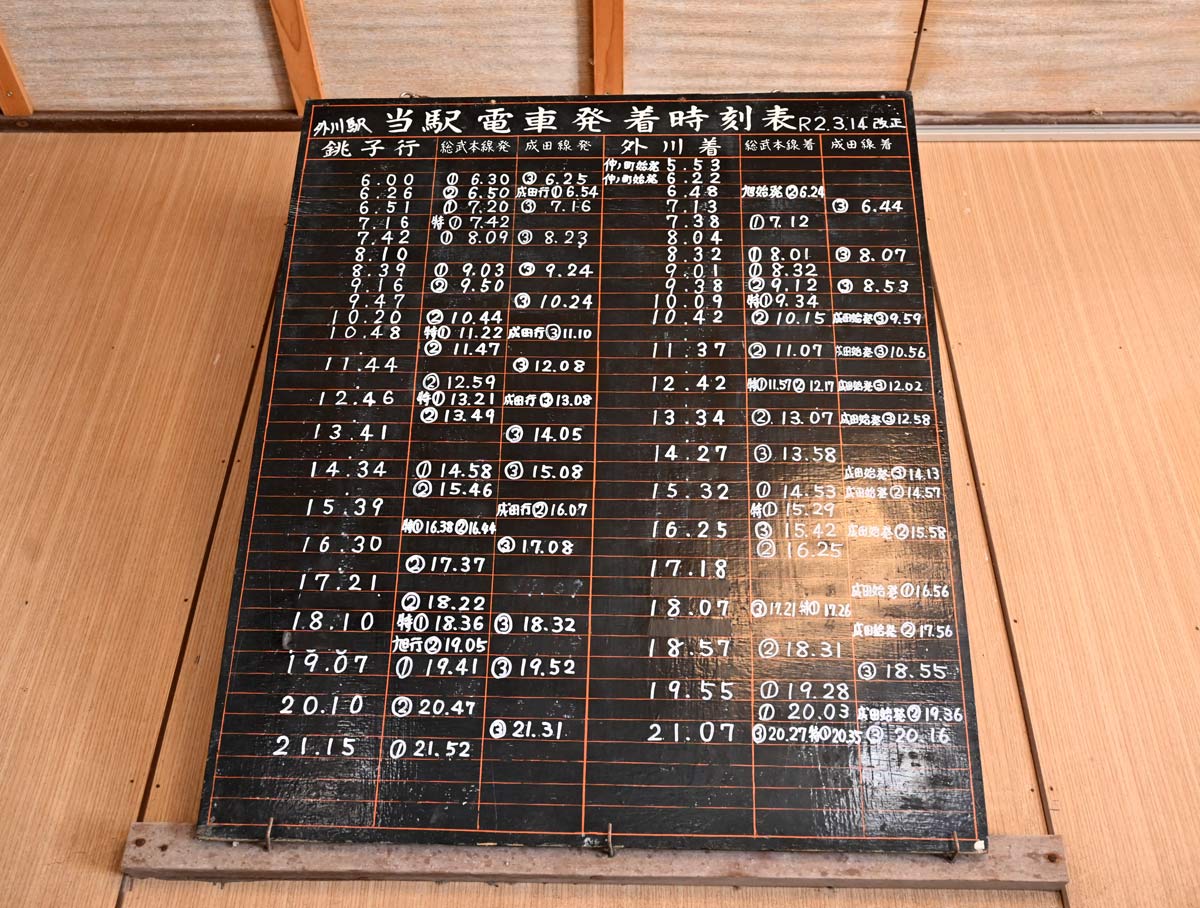 外川駅 当駅電車発着時刻表 R2.3.14改正
銚子行 総武本線発 成田線発 外川着 総武本線着 成田線着
仲ノ町始発 5.53
6.00 ① 6.30 ③ 6.25 仲ノ町始発 6.22
6.26 ② 6.50 成田行① 6.54 6.48 旭始発 ② 6.24
6.51 ① 7.20 ③ 7.16 7.13 ③ 6.44
7.16 特① 7.42 7.38 ① 7.12
7.42 ① 8.09 ③ 8.23 8.04
8.10 8.32 ① 8.01 ③ 8.07
8.39 ① 9.03 ③ 9.24 9.01 ① 8.32
9.16 ② 9.50 9.38 ② 9.12 ③ 8.53
9.47 ③ 10.24 10.09 特① 9.34
10.20 ② 10.44 10.42 ② 10.15 成田始発③ 9.59
10.48 特① 11.22 成田行③ 11.10
② 11.47 11.37 ② 11.07 成田始発③ 10.56
11.44 ③ 12.08
② 12.59 12.42 特① 11.57 ② 12.17 成田始発③ 12.02
12.46 特① 13.21 成田行③ 13.08
② 13.49 13.34 ② 13.07 成田始発③ 12.58
13.41 ③ 14.05
14.27 ③ 13.58
14.34 ① 14.58 ③ 15.08 成田始発③ 14.13
② 15.46 15.32 ① 14.53 成田始発② 14.57
15.39 成田行② 16.07 特① 15.29
特① 16.38 ② 16.44 16.25 ③ 15.42 成田始発② 15.58
16.30 ③ 17.08 ② 16.25
② 17.37 17.18
17.21 成田始発① 16.56
② 18.22 18.07 ③ 17.21 特① 17.26
18.10 特① 18.36 ③ 18.32 成田始発② 17.56
旭行② 19.05 18.57 ② 18.31
19.07 ① 19.41 ③ 19.52 ③ 18.55
19.55 ① 19.28
20.10 ② 20.47 ① 20.03 成田始発② 19.36
③ 21.31 21.07 ③ 20.27 特① 20.35 ③ 20.16
21.15 ① 21.52